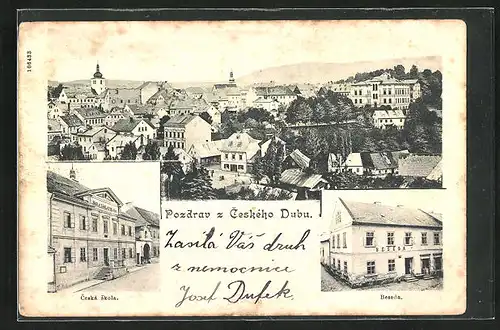 106433
Pozdrav z Českého Dubu.
Zasílá Váš druh
z nemocnice
Josef Dufek.
BESEDA
Česká škola.
Beseda.